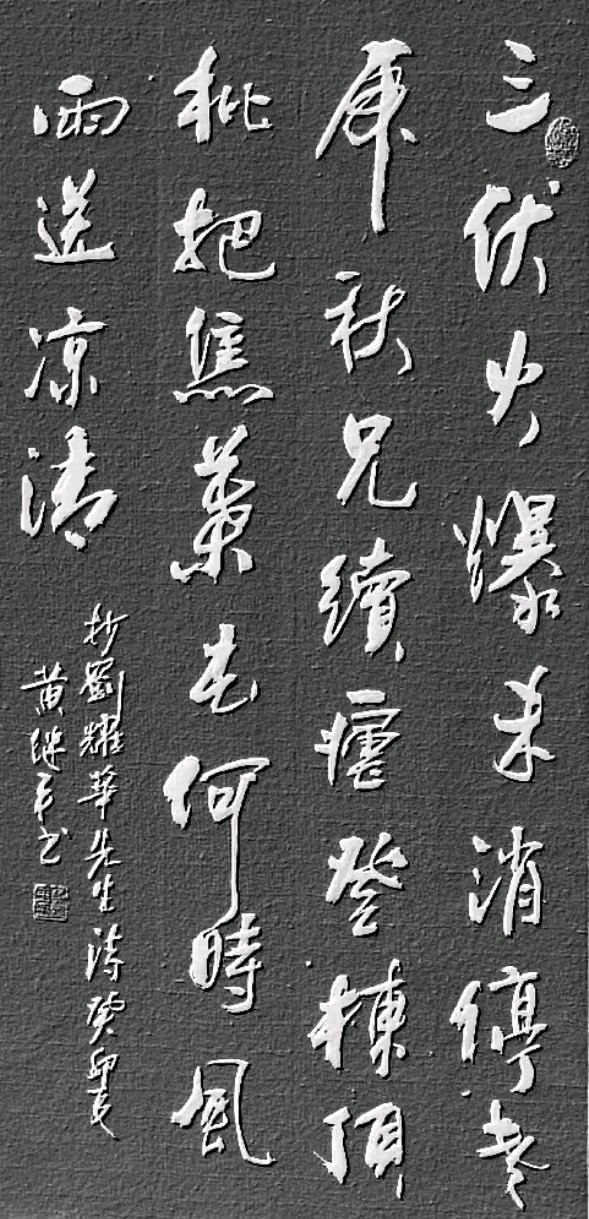 三伏火爆未消停老
虎秋兄續登棟頂
枇杷焦葉毛何時風
雨送凉清
抄劉耀華先生詩癸卯夏
黄继平书